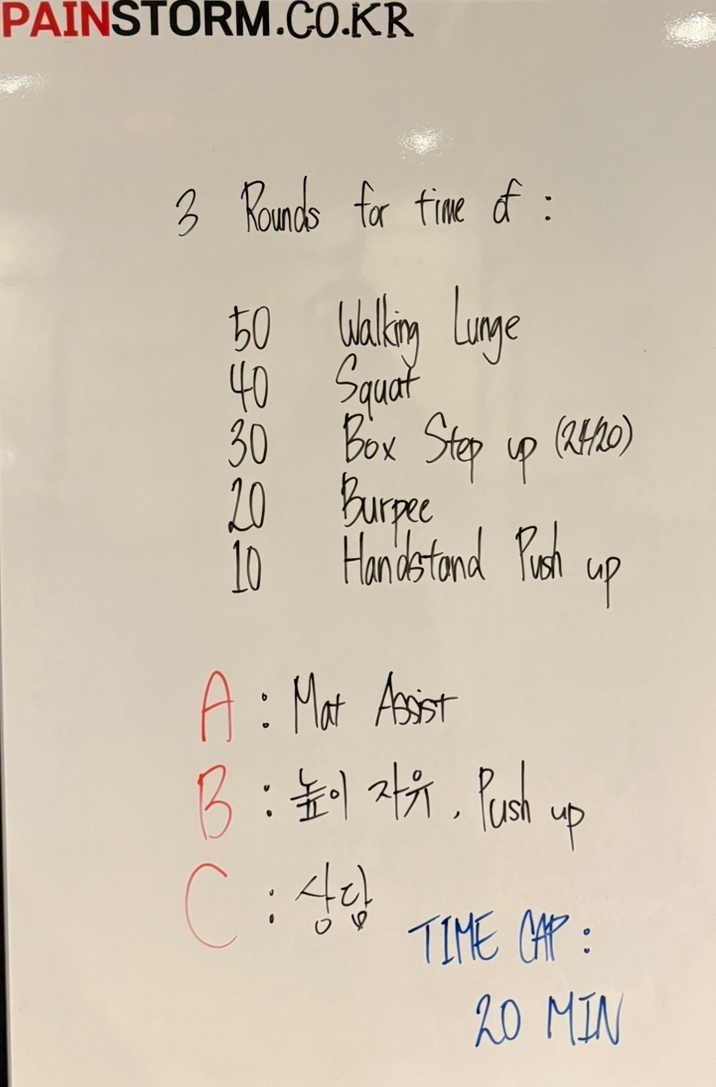 PAINSTORM.CO.KR
3 Rounds for time of :
50 Walking Lunge
40 Squat
30 Box Step up (24/20)
20 Burpee
10 Handstand Push up
A : Mat Assist
B : 높이 자유, Push up
C : 상담
TIME CAP :
20 MIN